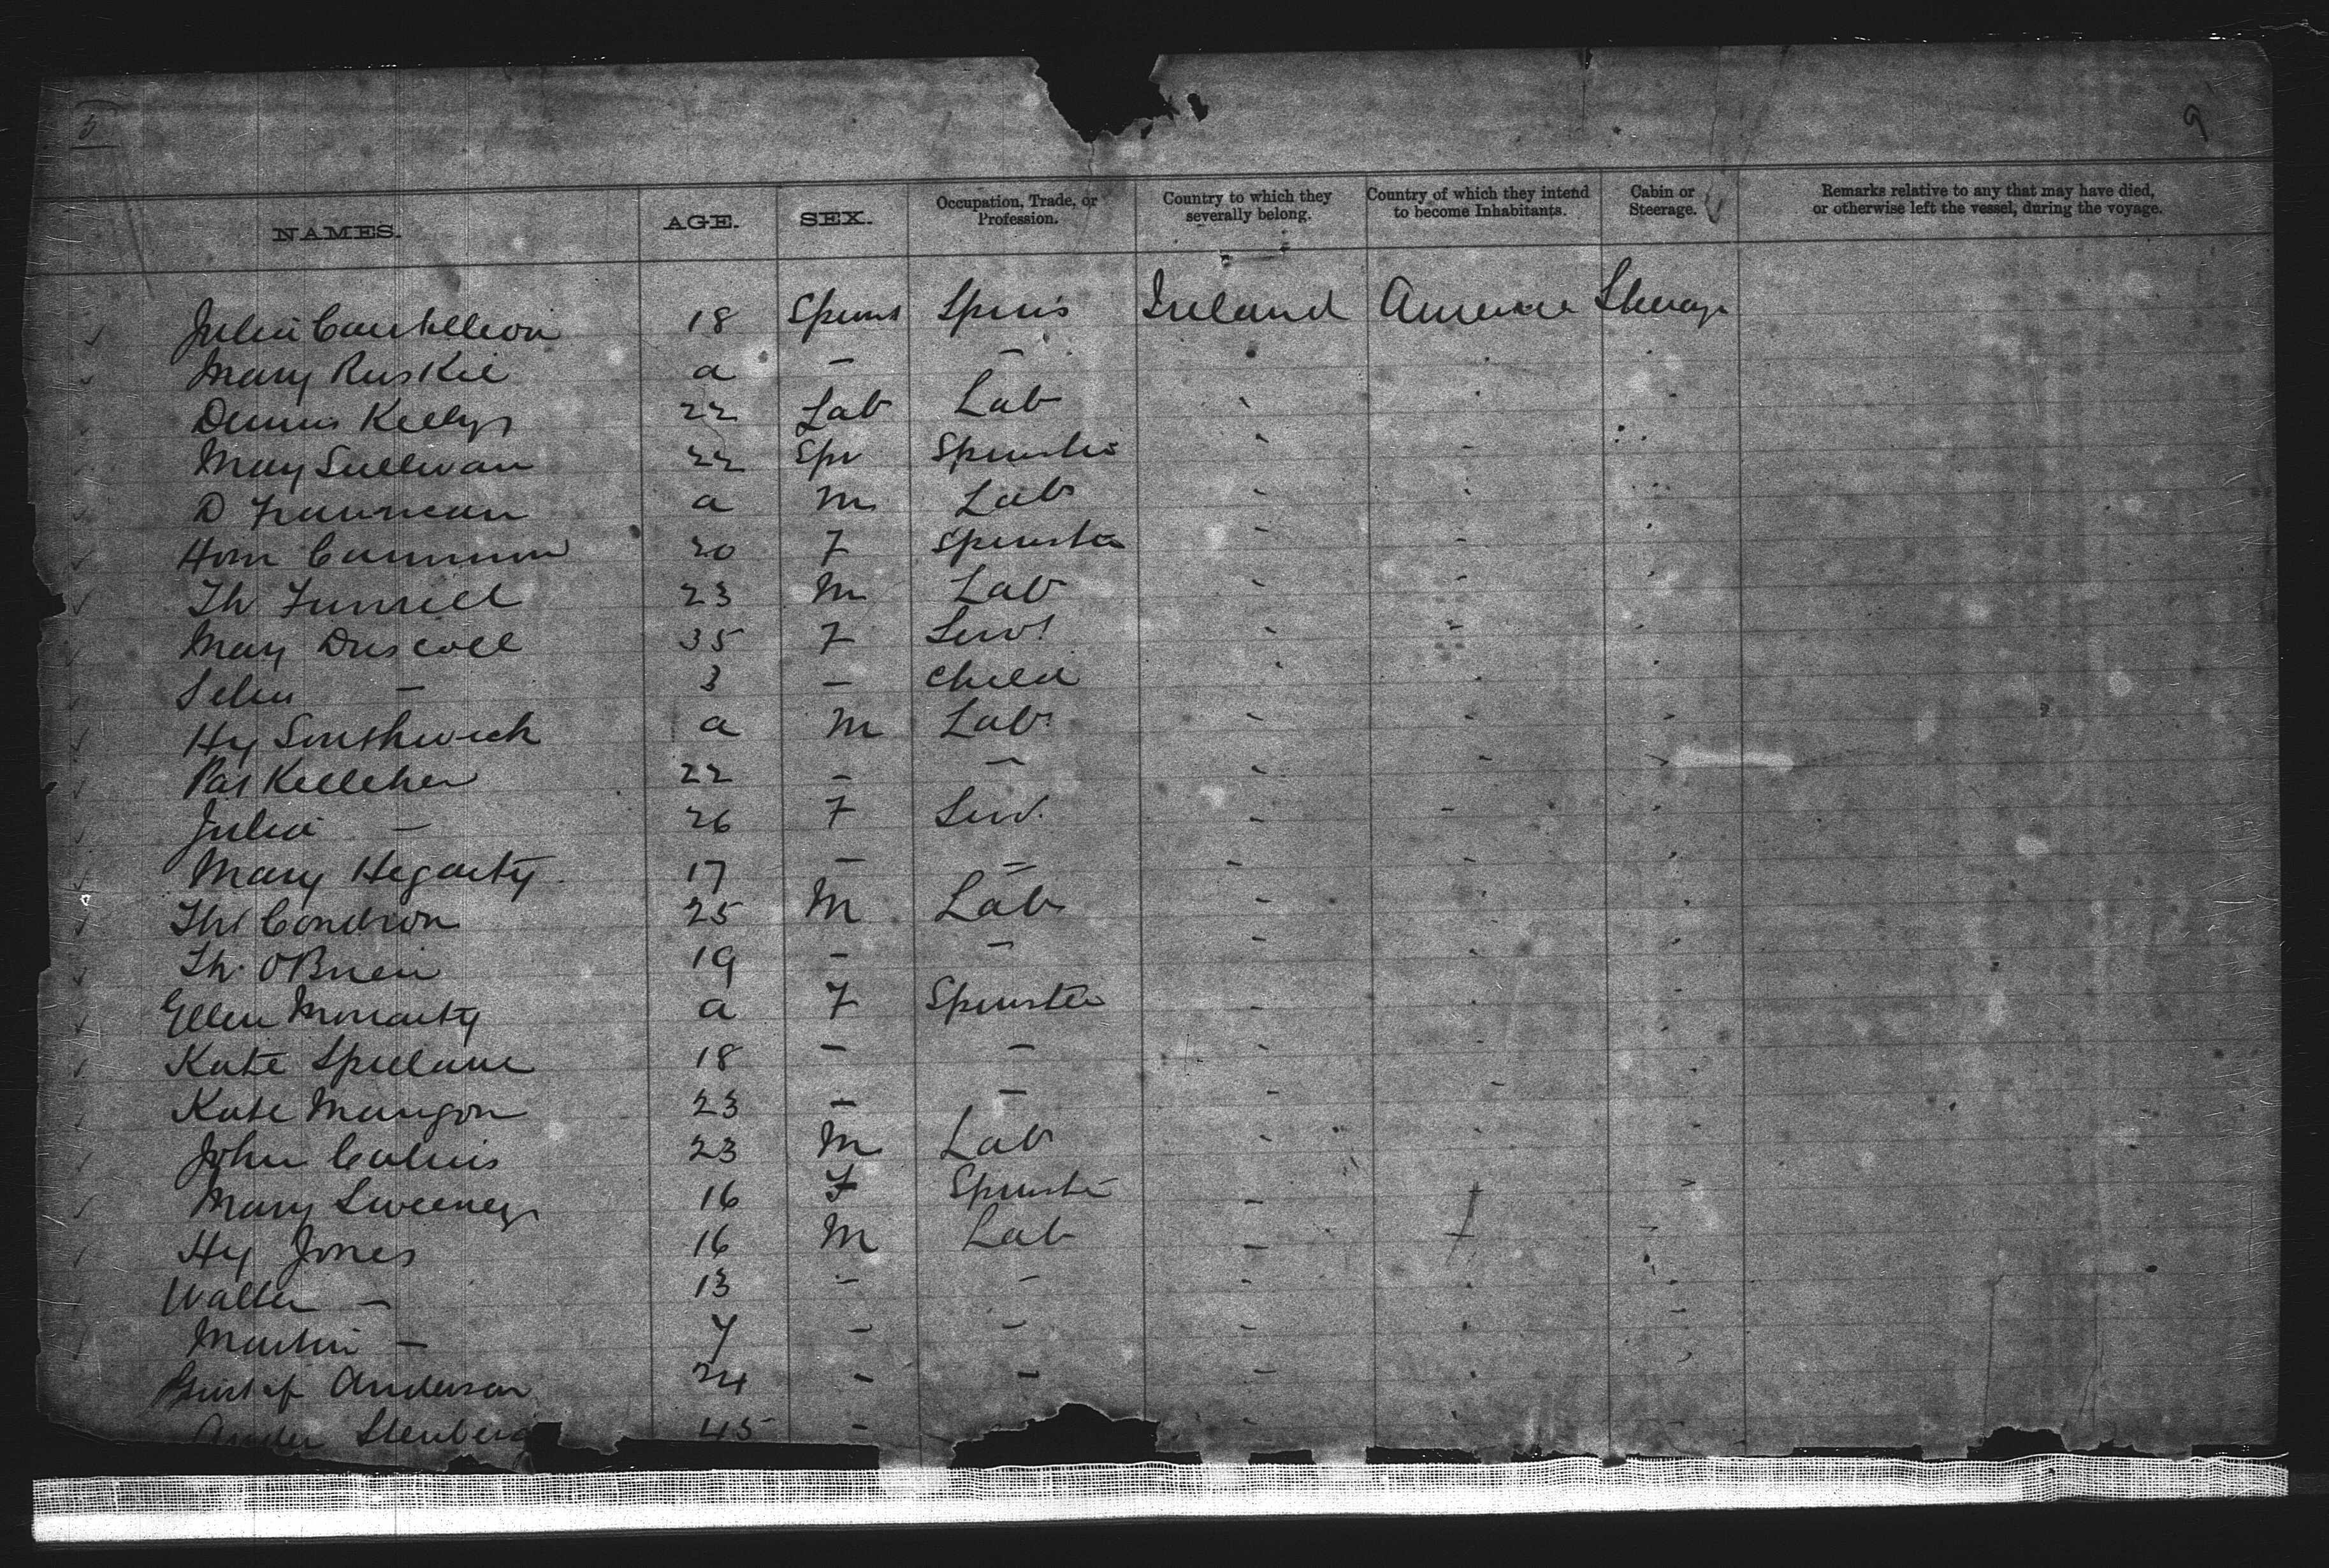 5
9
NAMES. AGE. SEX. Occupation, Trade, or Profession. Country to which they severally belong. Country of which they intend to become Inhabitants. Cabin or Steerage. Remarks relative to any that may have died, or otherwise left the vessel, during the voyage.
Julia 18 Spins Spins Ireland America Steerage
Mary Ruskie a - -
Dennis Kelly 22 Lab Lab
Mary Sullivan 22 Spr Spinster
D a M Lab
20 F Spinster
Th 23 M Lab
Mary Driscoll 35 F Servt
- 3 - Child
Hy Southwick a M Lab
Pat Kelleher 22 - -
Julia - 26 F Serv.
Mary Hegarty 17 - -
Ths Condron 25 M Lab
Th. O'Brien 19 - -
Ellen Moriarty a F Spinster
Kate Spillane 18 - -
Kate Mangon 23 - -
John 23 M Lab
Mary Sweeney 16 F Spinster
Hy Jones 16 M Lab
Walter - 13 - -
Martin - 7 - -
Gustaf Anderson 24 - -
Stenberg 45 -